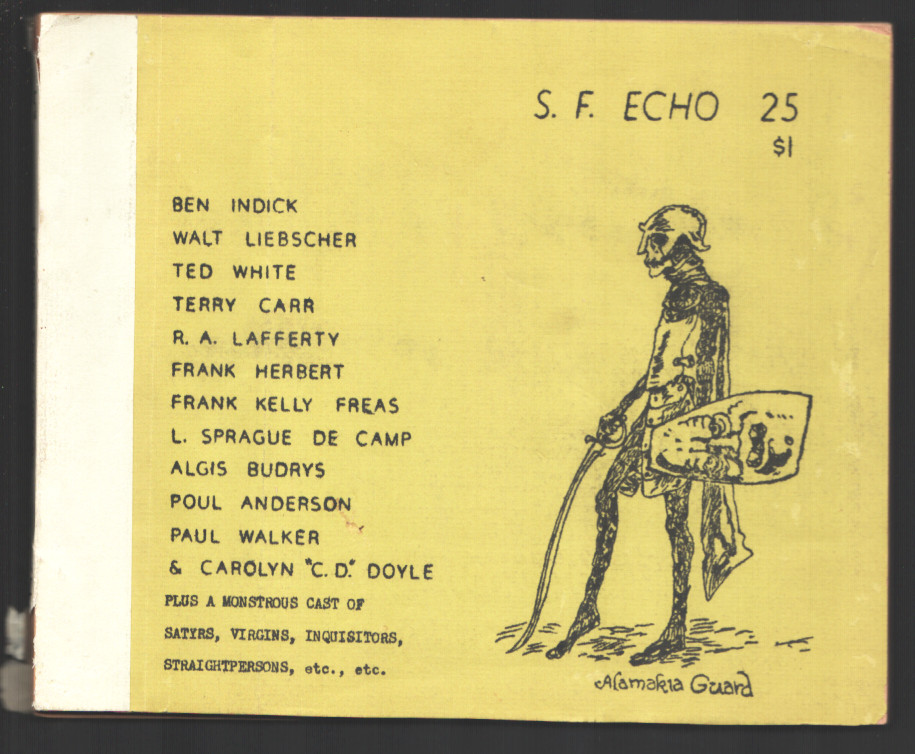 S. F. ECHO 25
$1
BEN INDICK
WALT LIEBSCHER
TED WHITE
TERRY CARR
R. A. LAFFERTY
FRANK HERBERT
FRANK KELLY FREAS
L. SPRAGUE DE CAMP
ALGIS BUDRYS
POUL ANDERSON
PAUL WALKER
& CAROLYN "C. D." DOYLE
PLUS A MONSTROUS CAST OF
SATYRS, VIRGINS, INQUISITORS,
STRAIGHTPERSONS, etc., etc.
Alamakia Guard